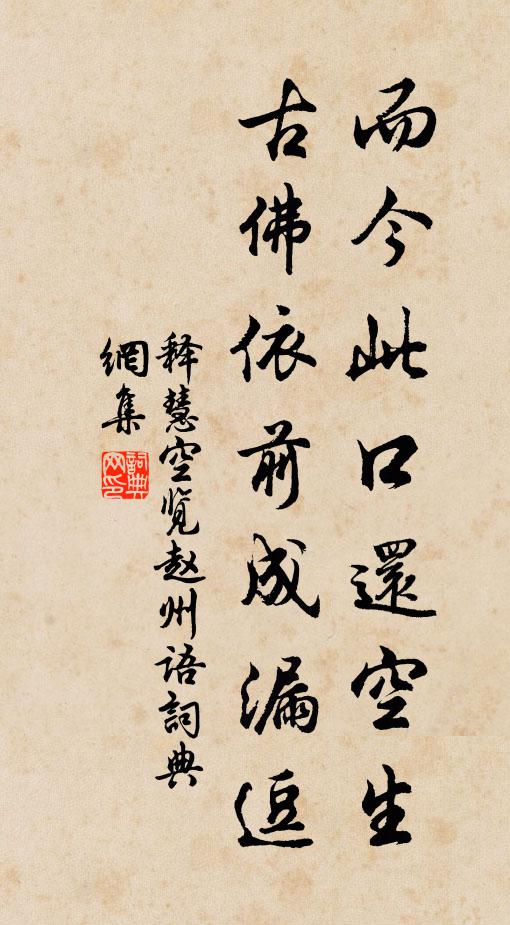 而今此口還空生
古佛依前成漏逗
释慧空览赵州语詞典
網集
詞典
网印